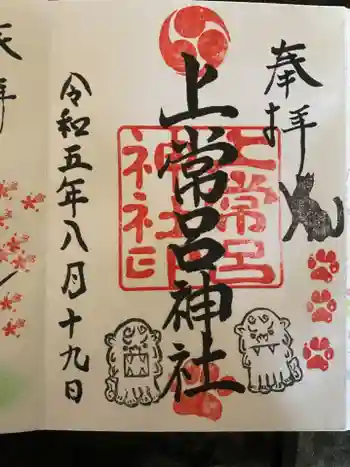 奉拝
上常呂神社
上常呂
神社印
令和五年八月十九日
拝